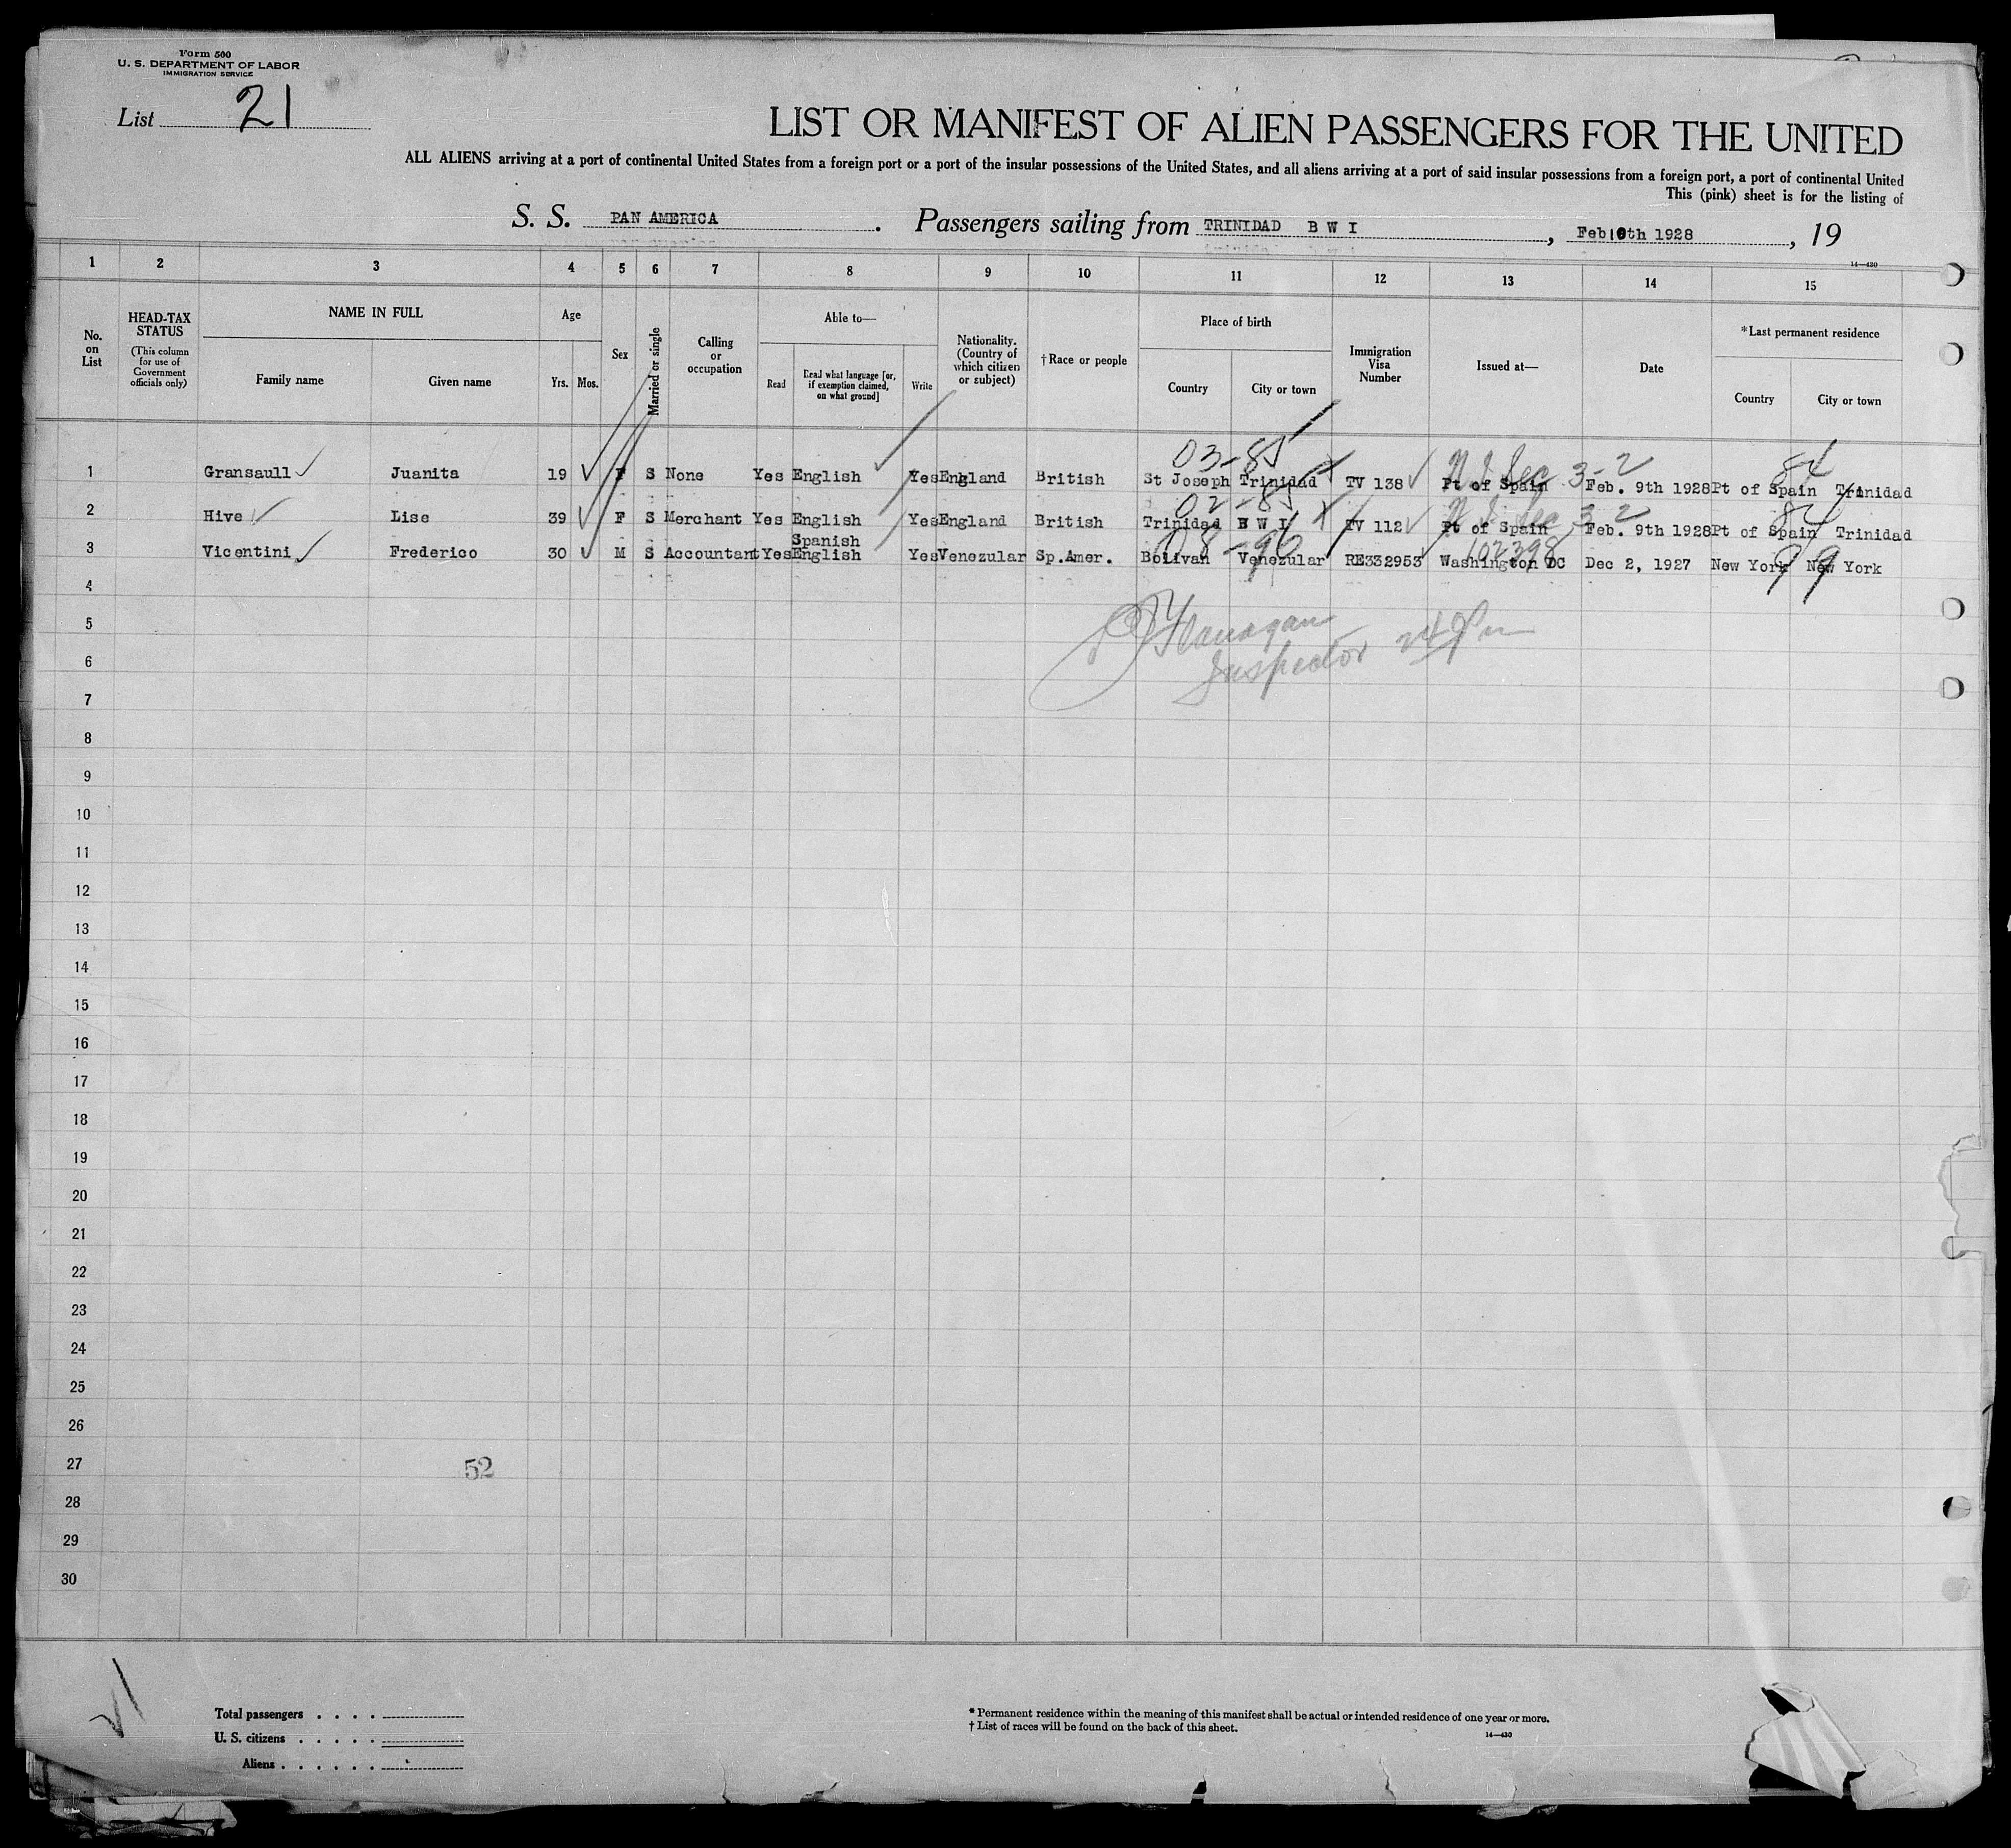 Form 500
U. S. DEPARTMENT OF LABOR
IMMIGRATION SERVICE
List 21
LIST OR MANIFEST OF ALIEN PASSENGERS FOR THE UNITED
ALL ALIENS arriving at a port of continental United States from a foreign port or a port of the insular possessions of the United States, and all aliens arriving at a port of said insular possessions from a foreign port, a port of continental United
This (pink) sheet is for the listing of
S. S. PAN AMERICA . Passengers sailing from TRINIDAD B W I , Feb 10th 1928 , 19
14—430
1 2 3 4 5 6 7 8 9 10 11 12 13 14 15
No. on List
HEAD-TAX STATUS
(This column for use of Government officials only)
NAME IN FULL
Family name Given name
Age
Yrs. Mos.
Sex
Married or single
Calling or occupation
Able to—
Read
Read what language [or, if exemption claimed, on what ground]
Write
Nationality. (Country of which citizen or subject)
†Race or people
Place of birth
Country City or town
Immigration Visa Number
Issued at—
Date
*Last permanent residence
Country City or town
03-85 3-2 84
1 Gransaull Juanita 19 F S None Yes English Yes England British St Joseph Trinidad TV 138 Pt of Spain Feb. 9th 1928 Pt of Spain Trinidad
02-85 3 2 84
2 Hive Lise 39 F S Merchant Yes English Yes England British Trinidad B W I TV 112 Pt of Spain Feb. 9th 1928 Pt of Spain Trinidad
Spanish
08-96 102398 99
3 Vicentini Frederico 30 M S Accountant Yes English Yes Venezular Sp.Amer. Bolivan Venezular RE332953 Washington DC Dec 2, 1927 New York New York
4
5
Flanagan
Inspector
6
7
8
9
10
11
12
13
14
15
16
17
18
19
20
21
22
23
24
25
26
27
52
28
29
30
Total passengers . . . .
U. S. citizens . . . . .
Aliens . . . . . .
* Permanent residence within the meaning of this manifest shall be actual or intended residence of one year or more.
† List of races will be found on the back of this sheet.
14—430